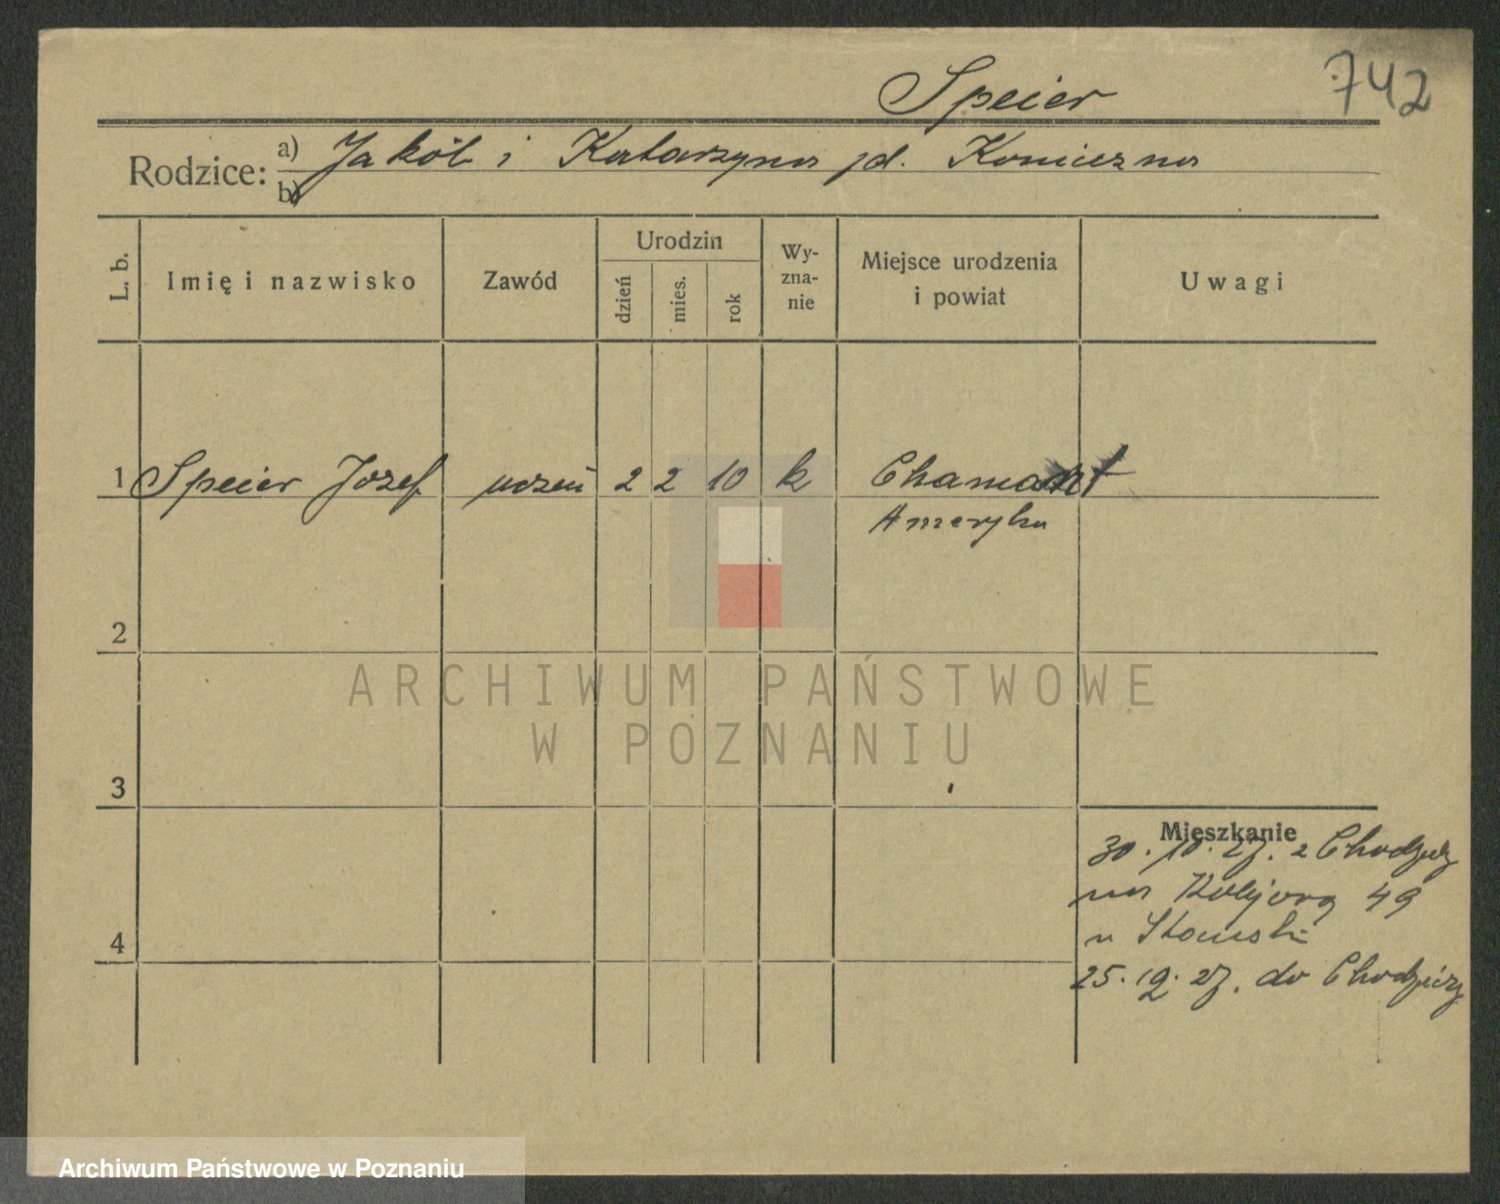 742
Speier
Rodzice: a) Jakób i Katarzyna jd. Konieczna
b)
L. b.
Imię i nazwisko
Zawód
Urodzin
dzień
mies.
rok
Wy-
zna-
nie
Miejsce urodzenia
i powiat
Uwagi
1 Speier Jozef uczeń 2 2 10 k
Ameryka
2
ARCHIWUM PAŃSTWOWE
W POZNANIU
3
Mieszkanie
30. 10. 27. z Chodzieży
na 49
u
25. 12. 27. do Chodzieży
4
Archiwum Państwowe w Poznaniu